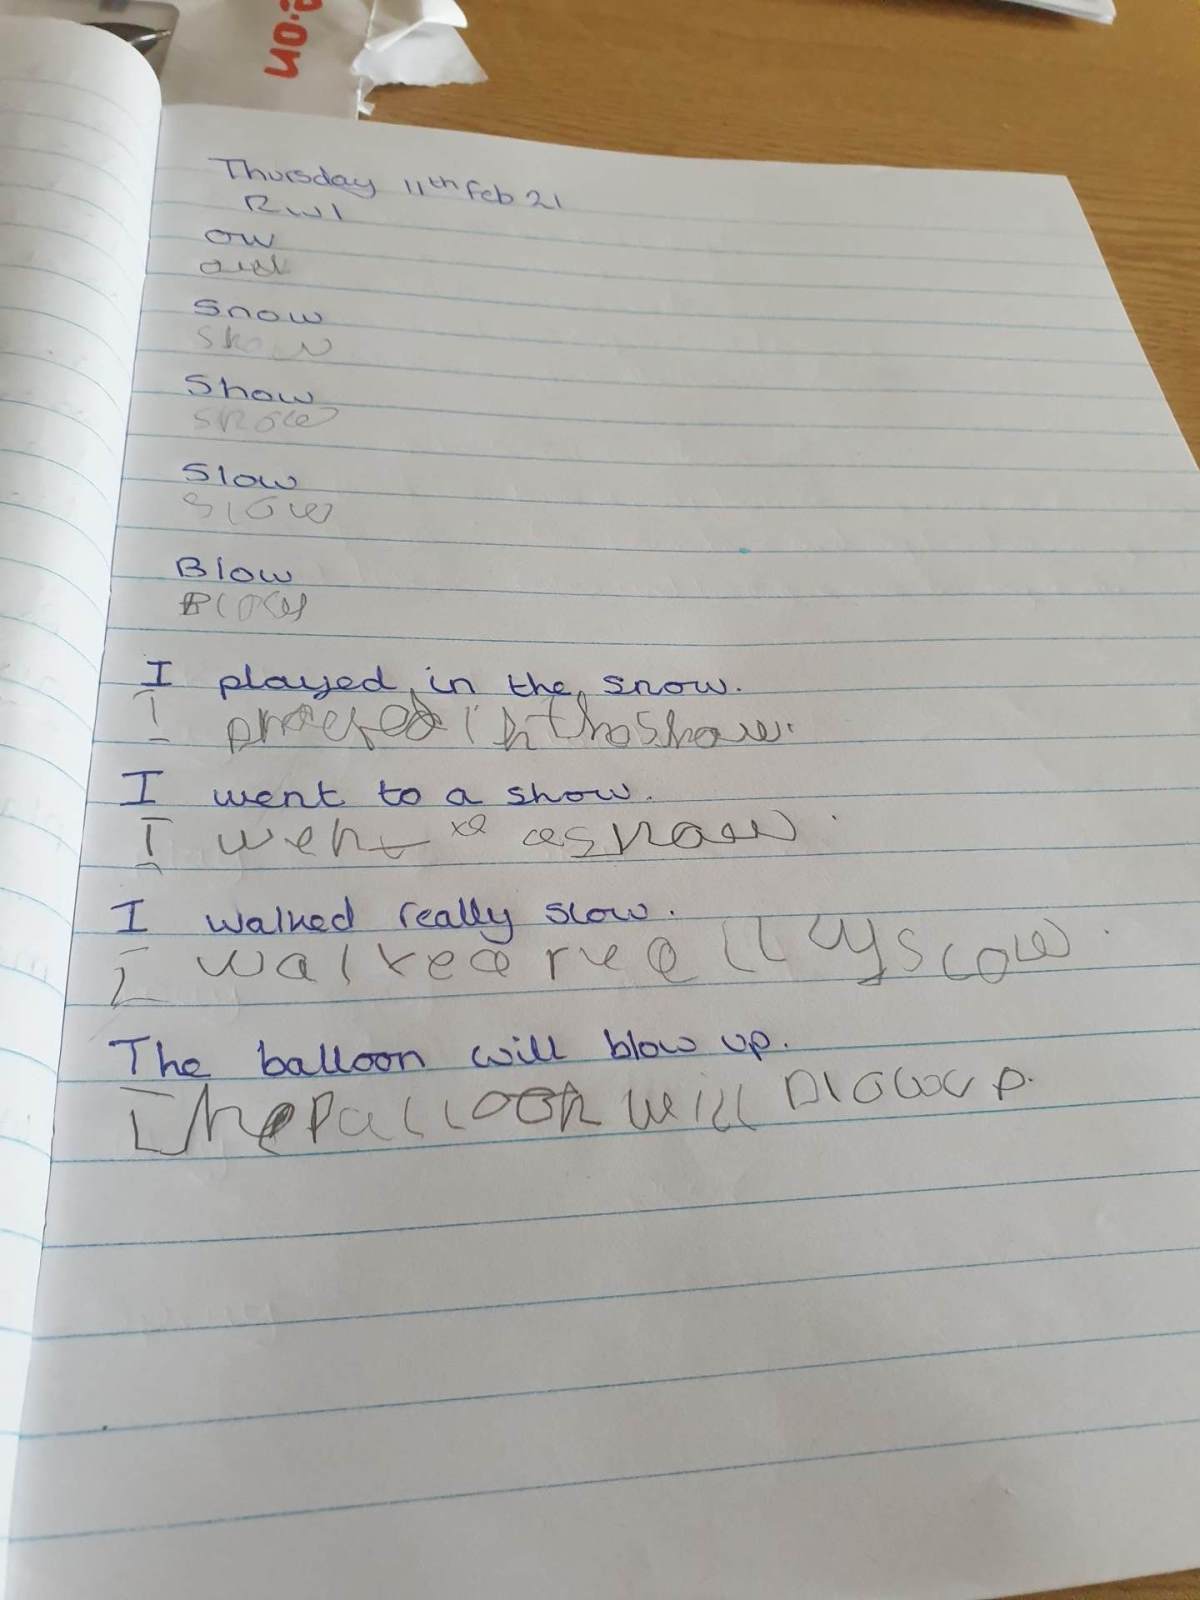 Thursday 11th Feb 21
RWI
ow
ow
Snow
Snow
Show
Show
Slow
Slow
Blow
Blow
I played in the snow.
I in the snow.
I went to a show.
I went to a show.
I walked really slow.
I walked really slow.
The balloon will blow up.
The balloon will blow up.